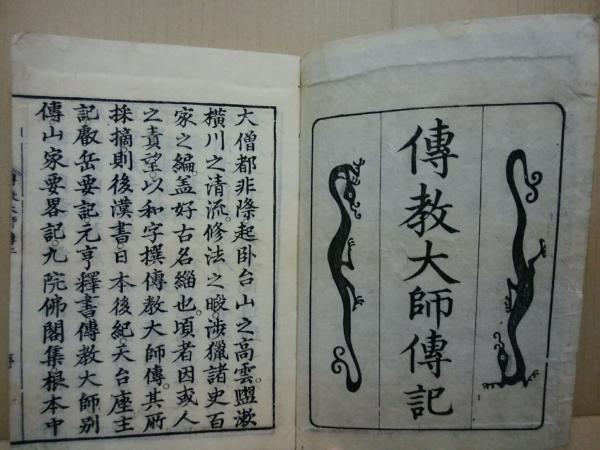 傳教大師傳記
大僧都非際起卧台山之高雲。盥漱
橫川之清流。修法之暇。涉獵諸史百
家之編。蓋好古名緇也。頃者因或人
之責望。以和字撰傳教大師傳。其所
採摘則後漢書。日本後紀。天台座主
記。叡岳要記。元亨釋書。傳教大師別
傳。山家要畧記。九院佛閣集。根本中